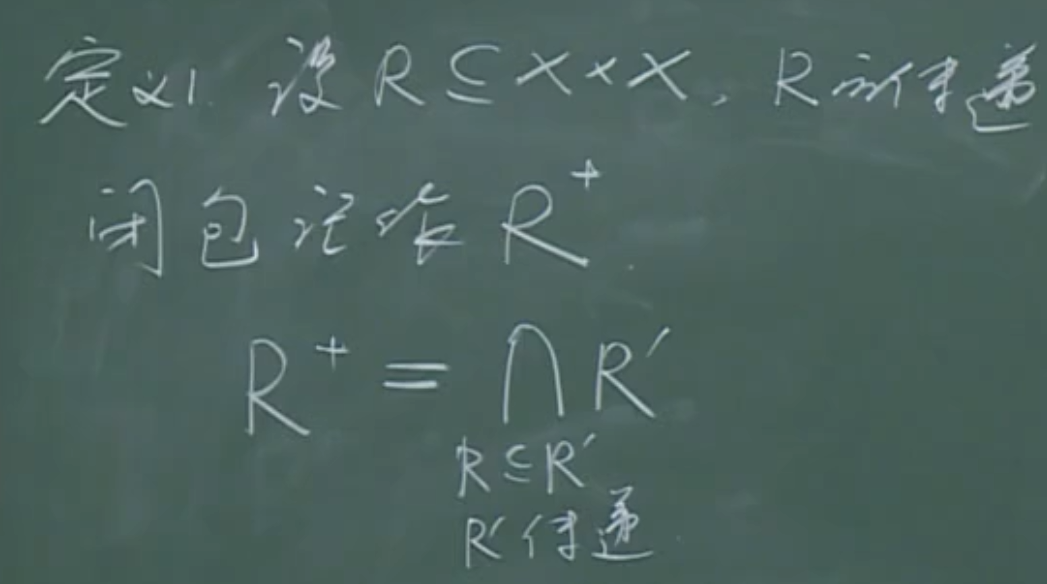 定义1. 设 R ⊆ X × X, R 的传递
闭包记作 R⁺.
R⁺ = ⋂ R′
R ⊆ R′
R′传递